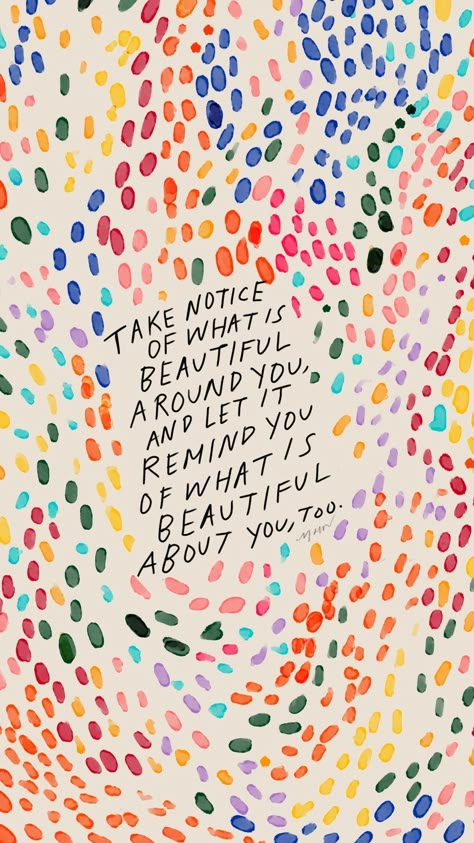 TAKE NOTICE
OF WHAT IS
BEAUTIFUL
AROUND YOU,
AND LET IT
REMIND YOU
OF WHAT IS
BEAUTIFUL
ABOUT YOU, TOO.